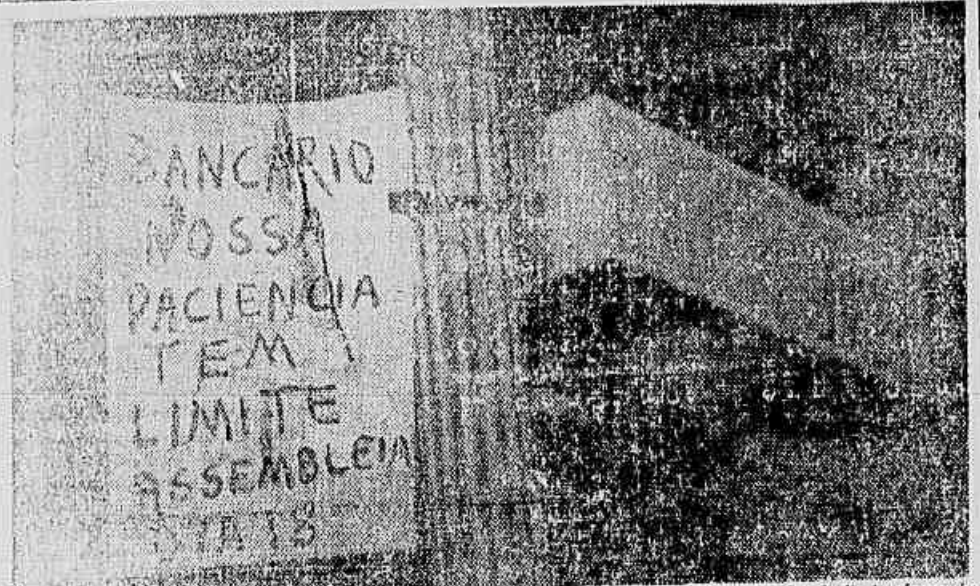 BANCÁRIO
NOSSA
PACIENCIA
TEM
LIMITE
ASSEMBLEIA
DIA 13